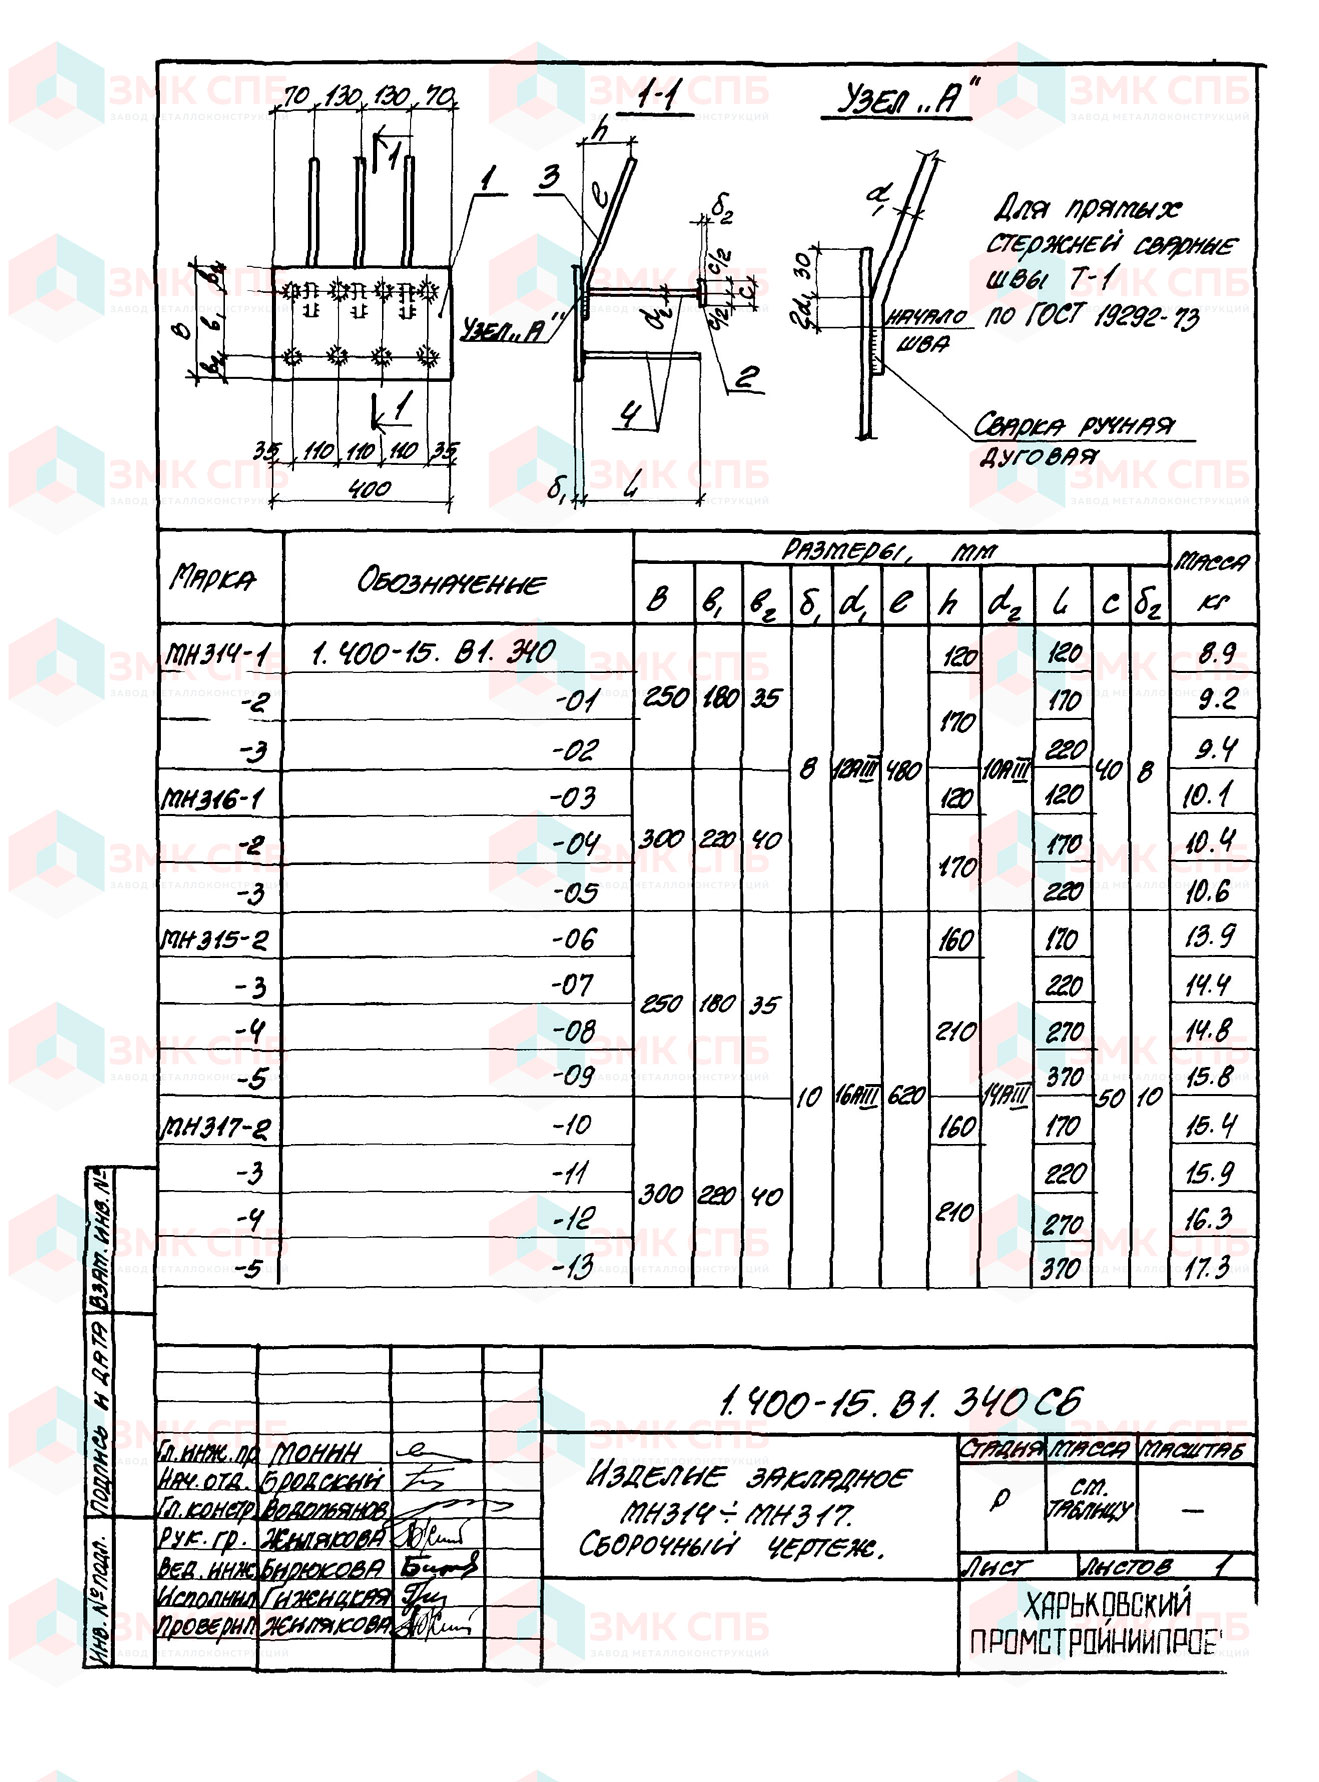 70 130 130 70
1
1
В
в2
в1
в2
35 110 110 110 35
400
1
1-1
h
3
е
δ2
с/2
с
с/2
d2
Узел „А"
2
4
δ1
L
Узел „А"
d1
30
2d1
Начало
шва
Для прямых
стержней сварные
швы Т-1
по ГОСТ 19292-73
Сварка ручная
дуговая
Марка Обозначение Размеры, мм Масса
кг
В в1 в2 δ1 d1 е h d2 L с δ2
МН314-1 1.400-15. В1. 340 120 120 8.9
-2 -01 250 180 35 170 170 9.2
-3 -02 220 9.4
8 12АIII 480 10АIII 40 8
МН316-1 -03 120 120 10.1
-2 -04 300 220 40 170 170 10.4
-3 -05 220 10.6
МН315-2 -06 160 170 13.9
-3 -07 220 14.4
250 180 35
-4 -08 210 270 14.8
-5 -09 370 15.8
10 16АIII 620 14АIII 50 10
МН317-2 -10 160 170 15.4
-3 -11 220 15.9
300 220 40 210
-4 -12 270 16.3
-5 -13 370 17.3
Взам. инв. №
Подпись и дата
Инв. № подл.
1.400-15. В1. 340 СБ
Гл. инж. пр Монин
Нач. отд. Бродский
Гл. констр Водопьянов
Рук. гр. Жилякова
Вед. инж. Бирюкова
Исполнил Гижицкая
Проверил Жилякова
Изделие закладное
МН314÷МН317.
Сборочный чертеж.
Стадия Масса Масштаб
Р см. таблицу —
Лист Листов 1
ХАРЬКОВСКИЙ
ПРОМСТРОЙНИИПРОЕ
ЗМК СПБ
ЗАВОД МЕТАЛЛОКОНСТРУКЦИЙ